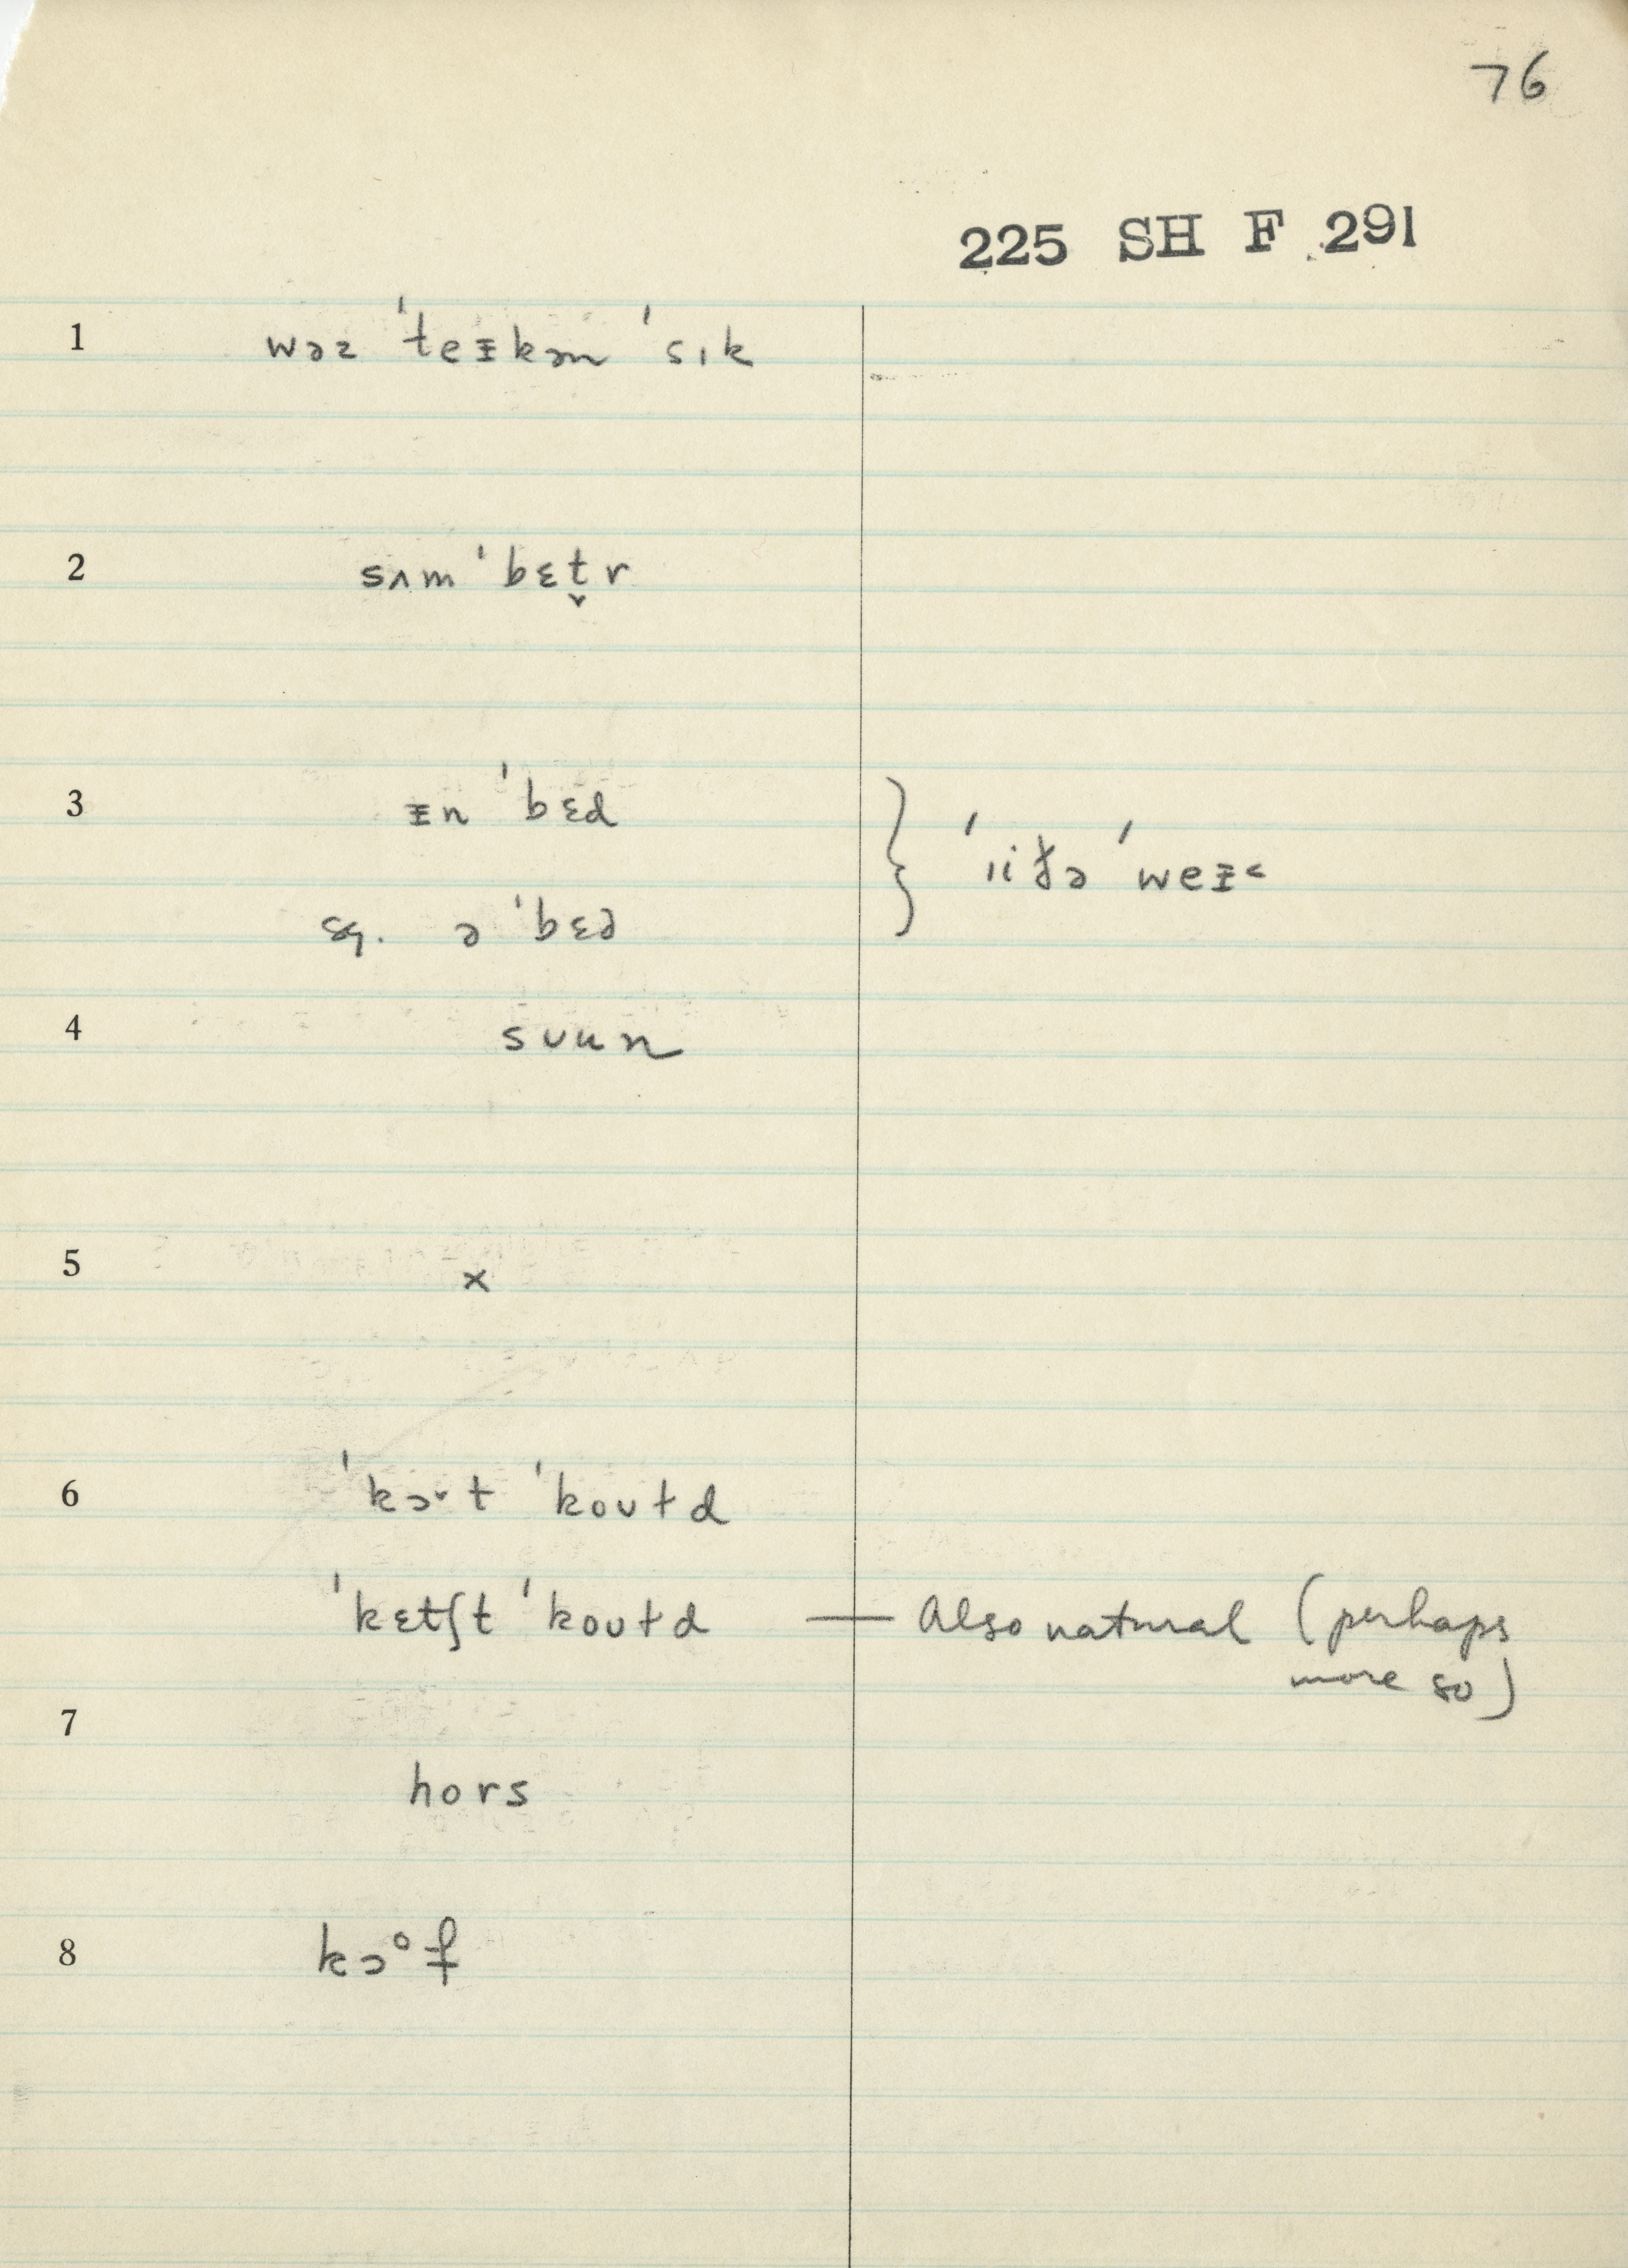 76
225 SH F 291
1 wəz ˈteᵻkən ˈsɪk
2 sʌm ˈbɛt̬r
3 ᵻn ˈbɛd
sg. ə ˈbɛd } ˈɪiðə ˈweᵻ<
4 sᴜun
5 x
6 ˈkɔˇt ˈkoᴜɫd
ˈkɛtʃt ˈkoᴜɫd — Also natural (perhaps
more so)
7
hors
8 kɔᵒf